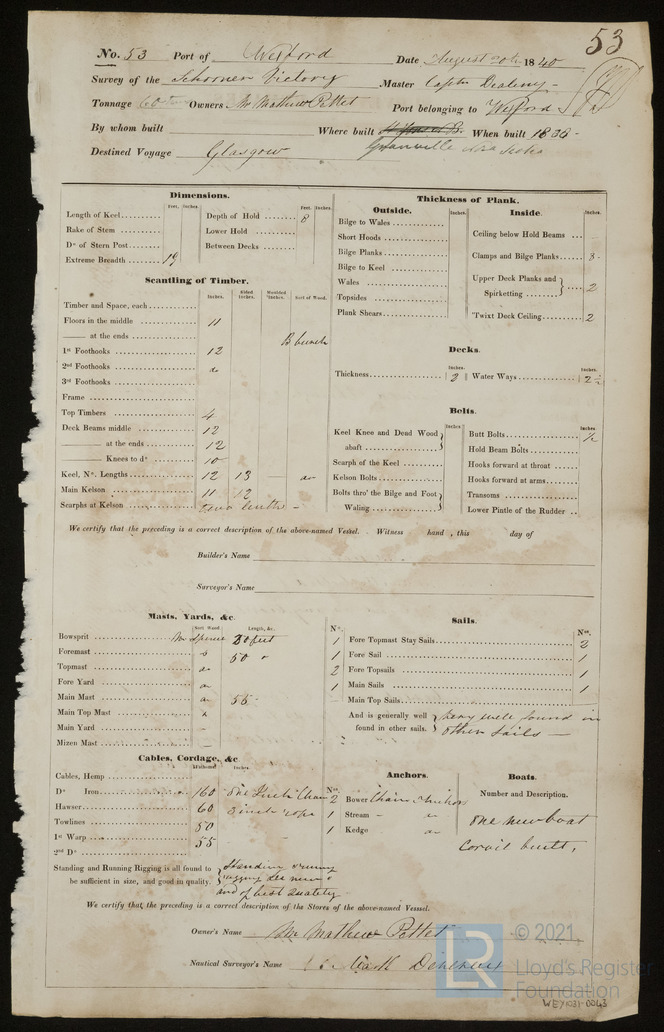 53
No. 53 Port of Wexford Date August 20th 1840
Survey of the Schooner Victory Master Captn
Tonnage 60 Owners Mr Mathew Pettet Port belonging to Wexford
By whom built Where built When built 1838-
Granville Nova Scotia
Destined Voyage Glasgow
Dimensions.
Feet. Inches. Feet. Inches.
Length of Keel.......... Depth of Hold ........ 8
Rake of Stem .......... Lower Hold ........
Do of Stern Post........ Between Decks ........
Extreme Breadth ........ 19
Scantling of Timber.
Inches. Sided Inches. Moulded Inches. Sort of Wood.
Timber and Space, each............
Floors in the middle ............ 11
—— at the ends ............
1st Foothooks ............ 12
2nd Foothooks ............ do
3rd Foothooks ............
Frame ............
Top Timbers ............ 4
Deck Beams middle ............ 12
—— at the ends ............ 12
—— Knees to do ............ 10
Keel, No. Lengths ............ 12 13 — do
Main Kelson ............ 11 12
Scarphs at Kelson ............ two lenths -
Thickness of Plank.
Outside.
Inches.
Bilge to Wales ............
Short Hoods ............
Bilge Planks ............
Bilge to Keel ............
Wales ............
Topsides ............
Plank Shears ............
Inside.
Inches.
Ceiling below Hold Beams ...
Clamps and Bilge Planks...... 8-
Upper Deck Planks and
Spirketting ........ } .... 2
'Twixt Deck Ceiling.......... 2
Decks.
Inches. Inches.
Thickness............ 2 Water Ways ............ 2½
Bolts.
Inches Inches.
Keel Knee and Dead Wood
abaft ............ }
Scarph of the Keel ............
Kelson Bolts ............
Bolts thro' the Bilge and Foot
Waling ............ }
Butt Bolts ............ ½
Hold Beam Bolts ............
Hooks forward at throat ......
Hooks forward at arms........
Transoms ............
Lower Pintle of the Rudder ..
We certify that the preceding is a correct description of the above-named Vessel. Witness hand , this day of
Builder's Name
Surveyor's Name
Masts, Yards, &c.
Sort Wood. Length, &c.
Bowsprit ............ spruce 30 feet
Foremast ............ 50
Topmast ............ do
Fore Yard ............
Main Mast ............ 55
Main Top Mast ............
Main Yard ............ —
Mizen Mast ............ —
Sails.
No. Nos.
1 Fore Topmast Stay Sails............ 2
1 Fore Sail ............ 1
2 Fore Topsails ............ 1
1 Main Sails ............ 1
Main Top Sails............
And is generally well
found in other sails. } very well found in
other sails —
Cables, Cordage, &c.
Fathoms. Inches.
Cables, Hemp ............
Do Iron............ 160 one Inch Chain
Hawser............ 60 3 inch rope
Towlines ............ 50
1st Warp ............ 55
2nd Do ............
Standing and Running Rigging is all found to
be sufficient in size, and good in quality. } Standin & runing
rigging new &
and of best quality
Anchors.
Nos.
2 Bower Chain Anchors
1 Stream - do
1 Kedge do
Boats.
Number and Description.
one new boat
built,
We certify that the preceding is a correct description of the Stores of the above-named Vessel.
Owner's Name Mr Mathew Pettet
Nautical Surveyor's Name Mark
LR
© 2021,
Lloyd's Register
Foundation
WEX1031-0043